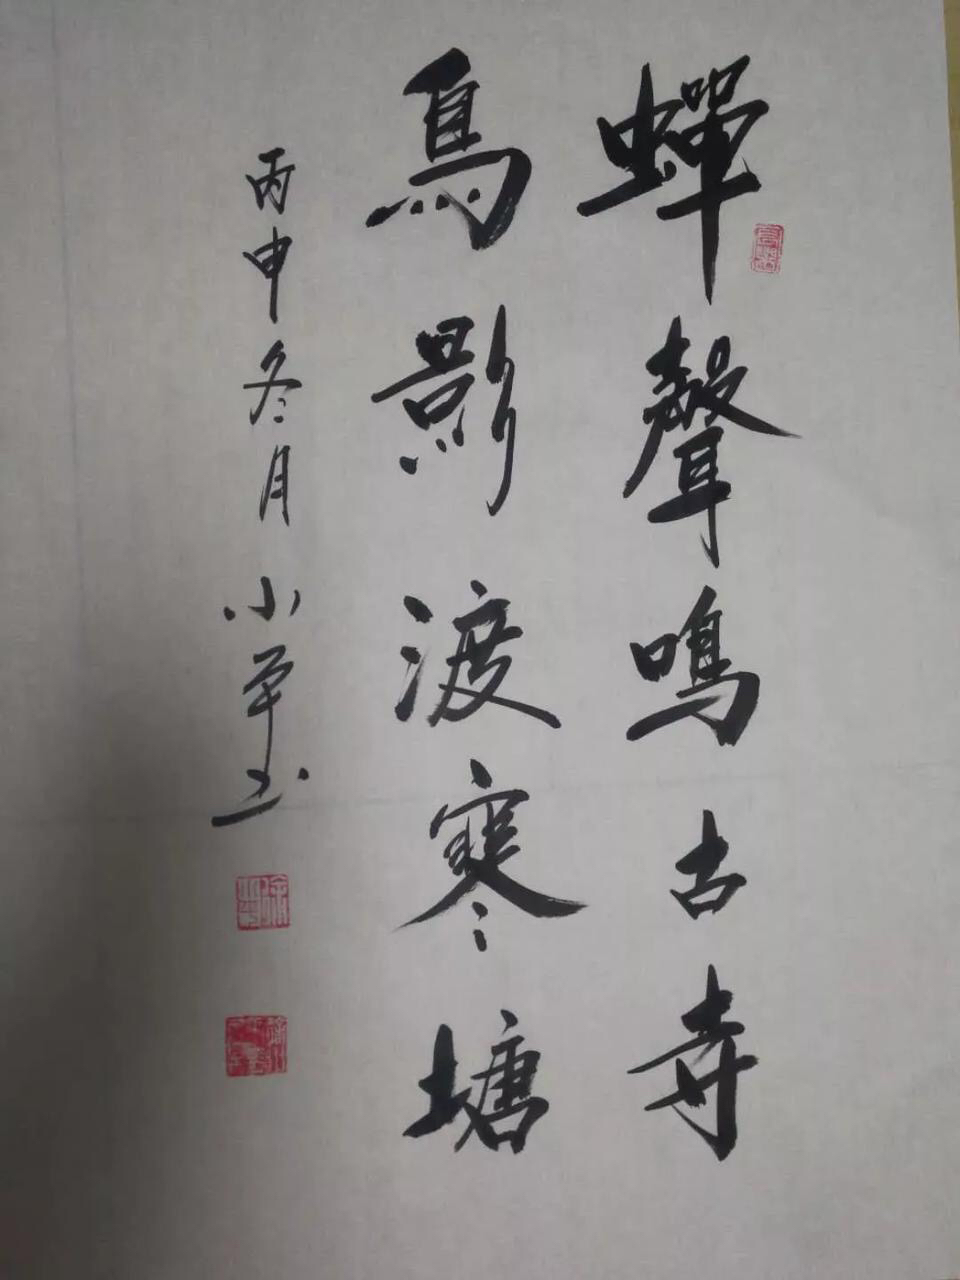 蟬聲鳴古寺
鳥影渡寒塘
丙申冬月 小平书